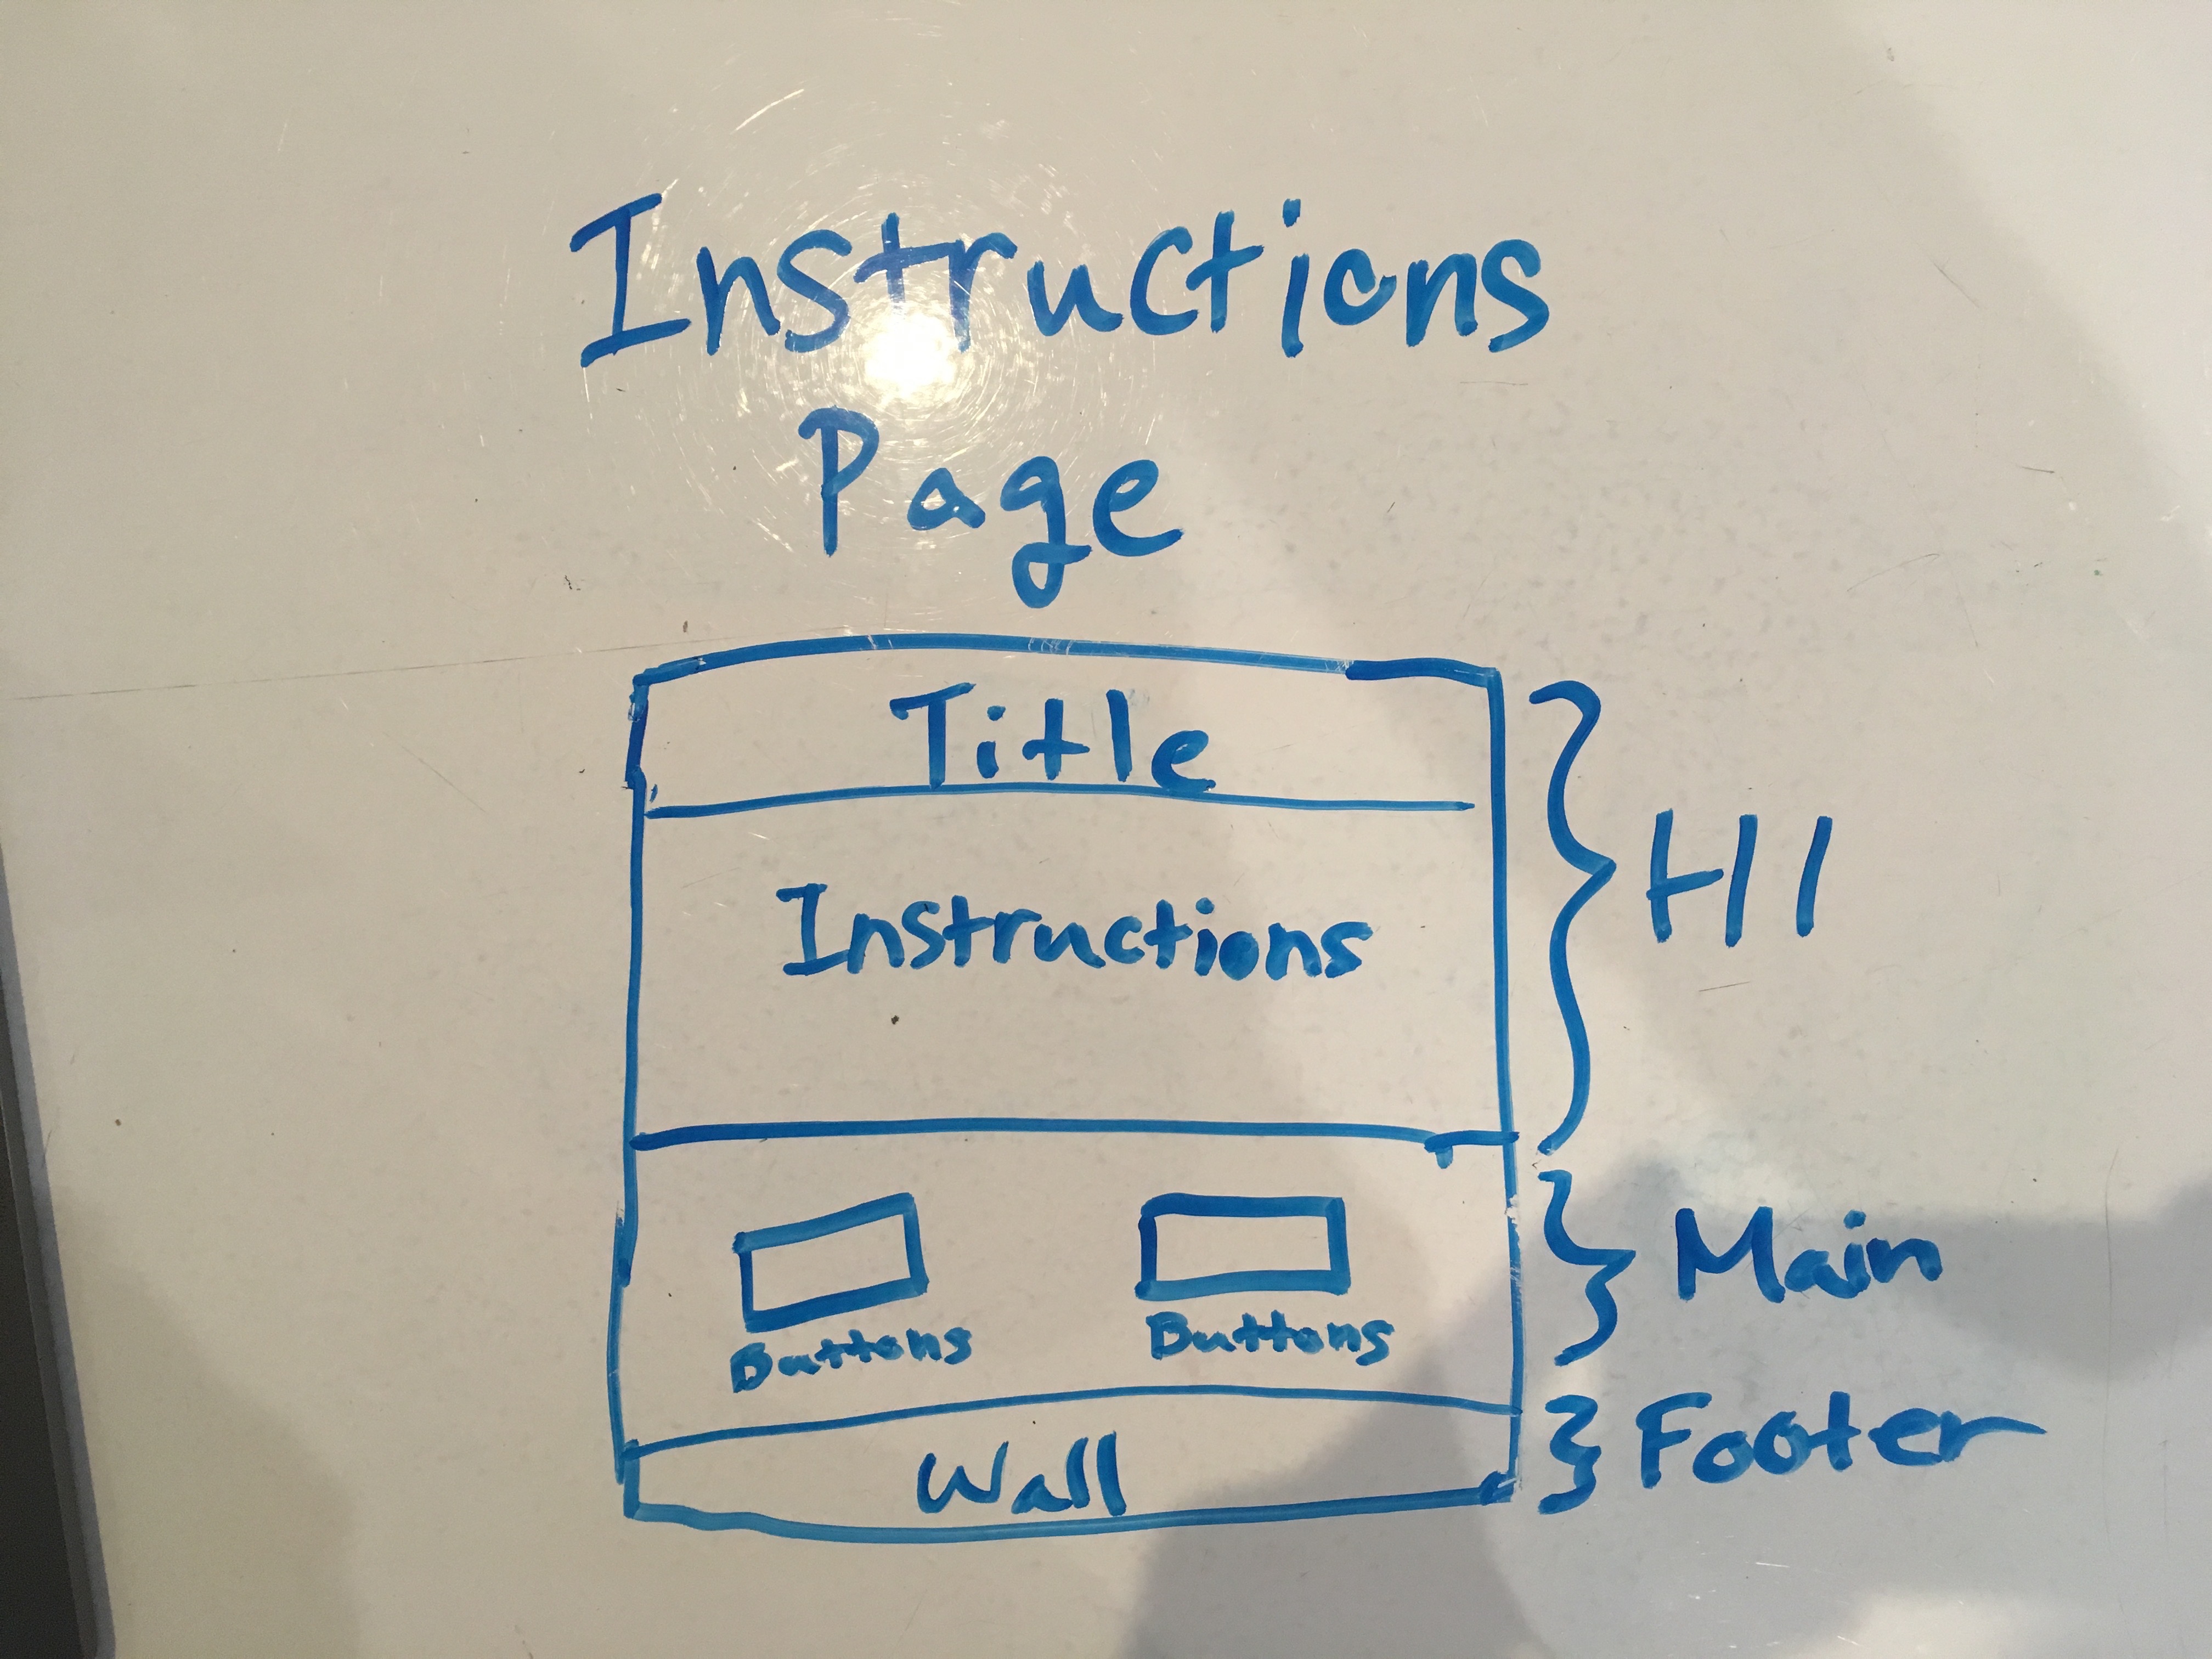 Instructions
Page
Title
Instructions
H1
Buttons
Buttons
Main
Wall
Footer